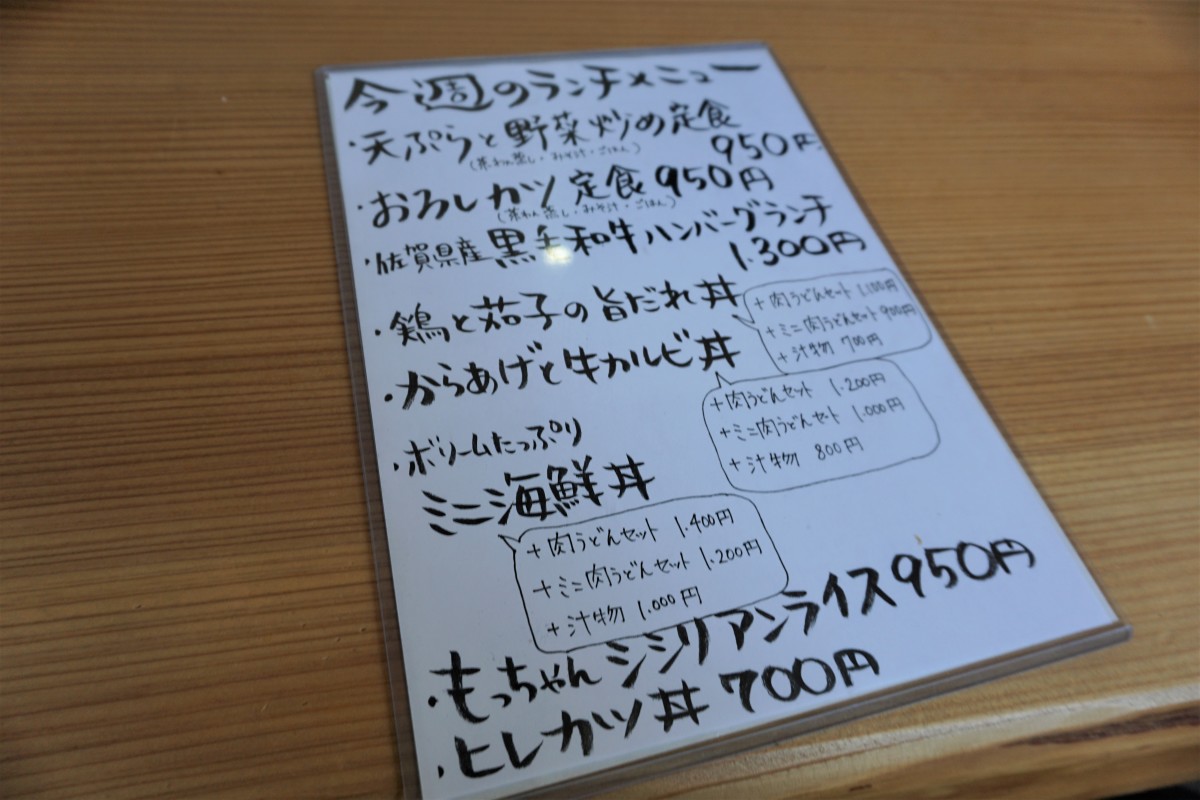 今週のランチメニュー
・天ぷらと野菜炒め定食
(茶わん蒸し・みそ汁・ごはん)
950円
・おろしカツ定食 950円
(茶わん蒸し・みそ汁・ごはん)
・佐賀県産黒毛和牛ハンバーグランチ
1.300円
・鶏と茄子の旨だれ丼
+肉うどんセット 1.100円
+ミニ肉うどんセット 900円
+汁物 700円
・からあげと牛カルビ丼
+肉うどんセット 1.200円
+ミニ肉うどんセット 1.000円
+汁物 800円
・ボリームたっぷり
ミニ海鮮丼
+肉うどんセット 1.400円
+ミニ肉うどんセット 1.200円
+汁物 1.000円
・もっちゃんシシリアンライス 950円
・ヒレカツ丼 700円